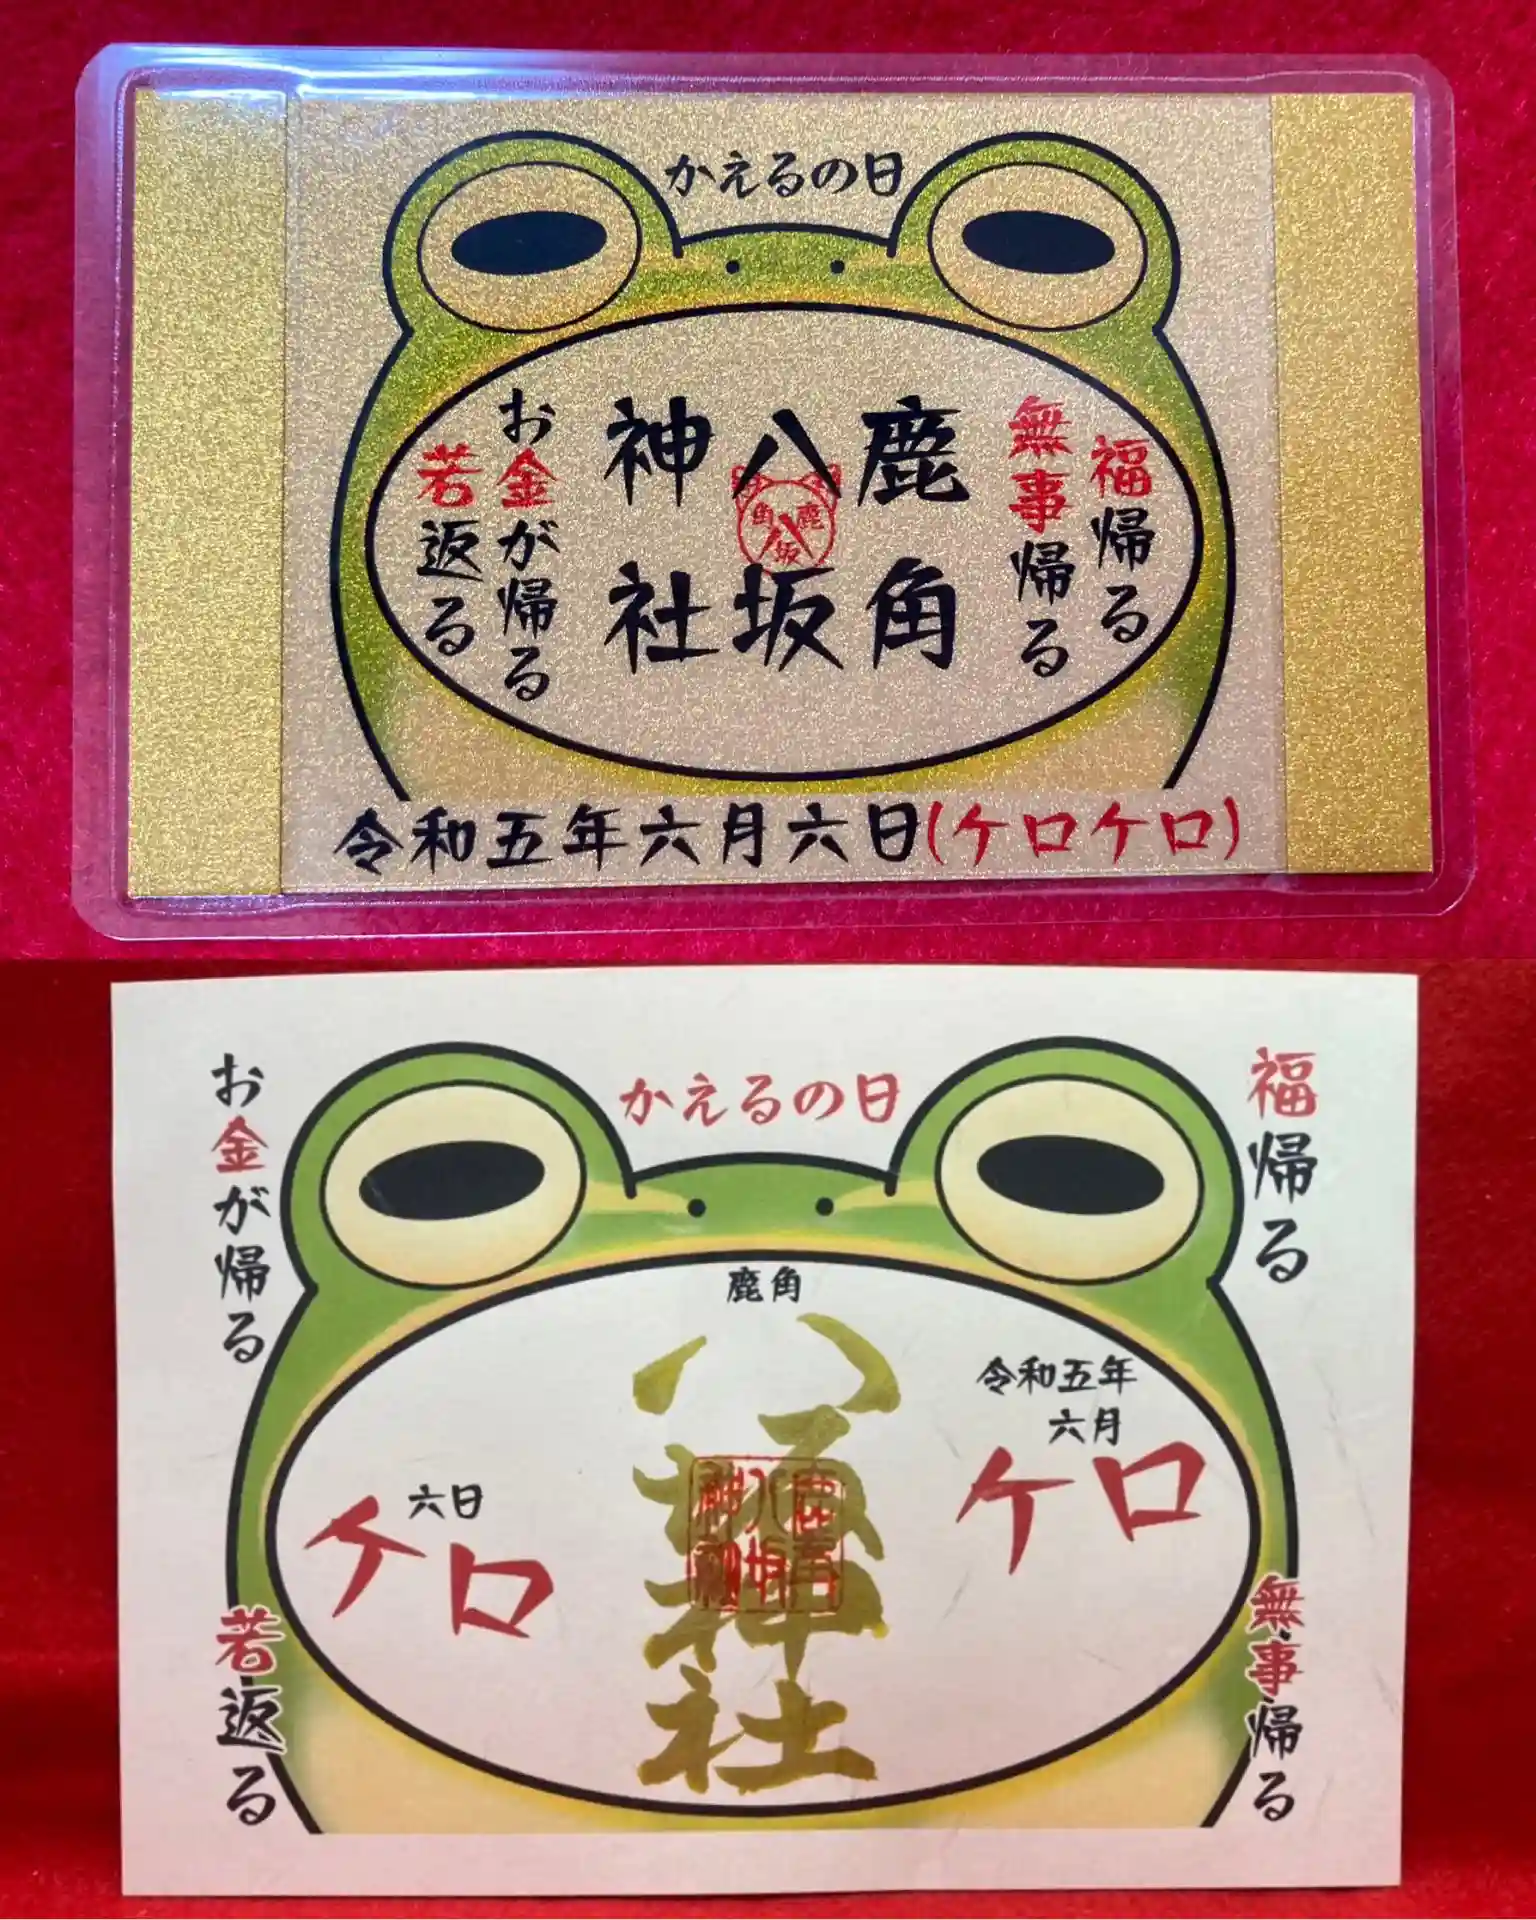 かえるの日
福帰る
無事帰る
鹿角
八坂
神社
鹿角
八坂
お金が帰る
若返る
令和五年六月六日(ケロケロ)
かえるの日
福帰る
無事帰る
鹿角
令和五年
六月
ケロ
八坂神社
鹿角
八坂
神社
六日
ケロ
お金が帰る
若返る